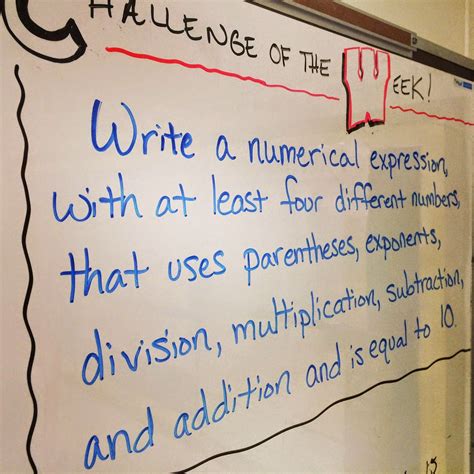 CHALLENGE OF THE WEEK!
Write a numerical expression,
with at least four different numbers,
that uses parentheses, exponents,
division, multiplication, subtraction,
and addition and is equal to 10.